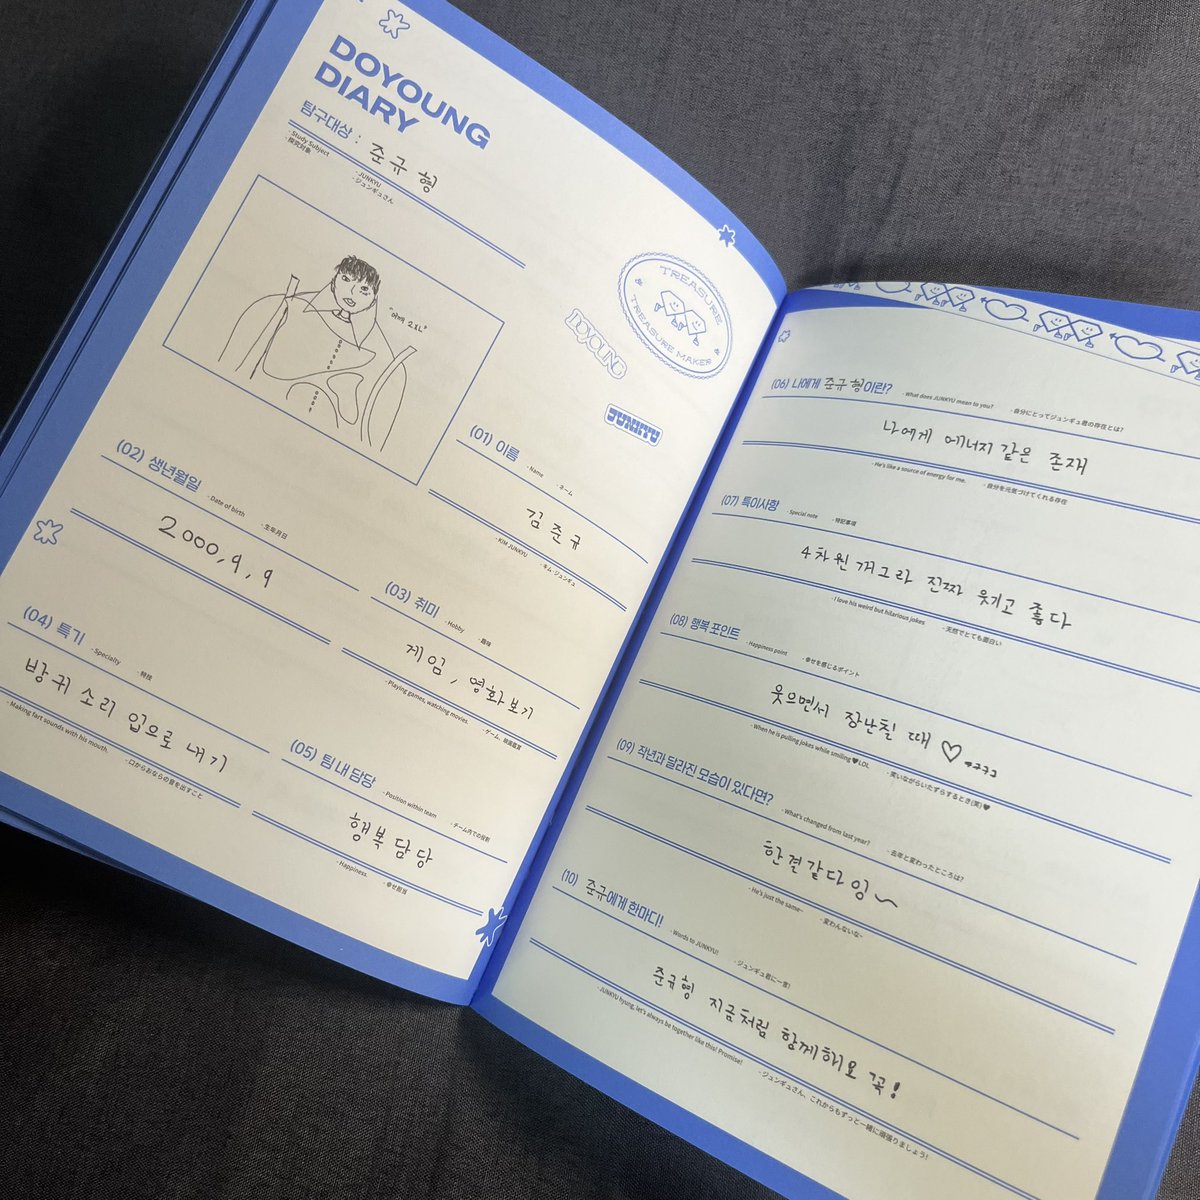 DOYOUNG
DIARY
탐구대상 : 준규형
· Study Subject
· 探究対象
· JUNKYU
· ジュンギュさん
"어깨 2XL"
TREASURE
TREASURE MAKER
DOYOUNG
JUNKYU
(01) 이름 · Name · ネーム
김준규
· KIM JUNKYU · キム・ジュンギュ
(02) 생년월일 · Date of birth · 生年月日
2000, 9, 9
(03) 취미 · Hobby · 趣味
게임, 영화보기
· Playing games, watching movies. · ゲーム、映画鑑賞
(04) 특기 · Specialty · 特技
방귀 소리 입으로 내기
· Making fart sounds with his mouth. · 口からおならの音を出すこと
(05) 팀 내 담당 · Position within team · チーム内での役割
행복 담당
· Happiness. · 幸せ担当
(06) 나에게 준규형이란? · What does JUNKYU mean to you? · 自分にとってジュンギュ君の存在とは?
나에게 에너지 같은 존재
· He's like a source of energy for me. · 自分を元気づけてくれる存在
(07) 특이사항 · Special note · 特記事項
4차원 개그라 진짜 웃기고 좋다
· I love his weird but hilarious jokes · 天然でとても面白い
(08) 행복 포인트 · Happiness point · 幸せを感じるポイント
웃으면서 장난칠 때 ♡ ㅋㅋㅋㅋ
· When he is pulling jokes while smiling ♥ LOL · 笑いながらいたずらするとき(笑)♥
(09) 작년과 달라진 모습이 있다면? · What's changed from last year? · 去年と変わったところは?
한결같다잉~
· He's just the same~ · 変わんないな~
(10) 준규에게 한마디! · Words to JUNKYU! · ジュンギュ君に一言!
준규형 지금처럼 함께해요 꼭!
· JUNKYU hyung, let's always be together like this! Promise! · ジュンギュさん、これからもずっと一緒に頑張りましょう!